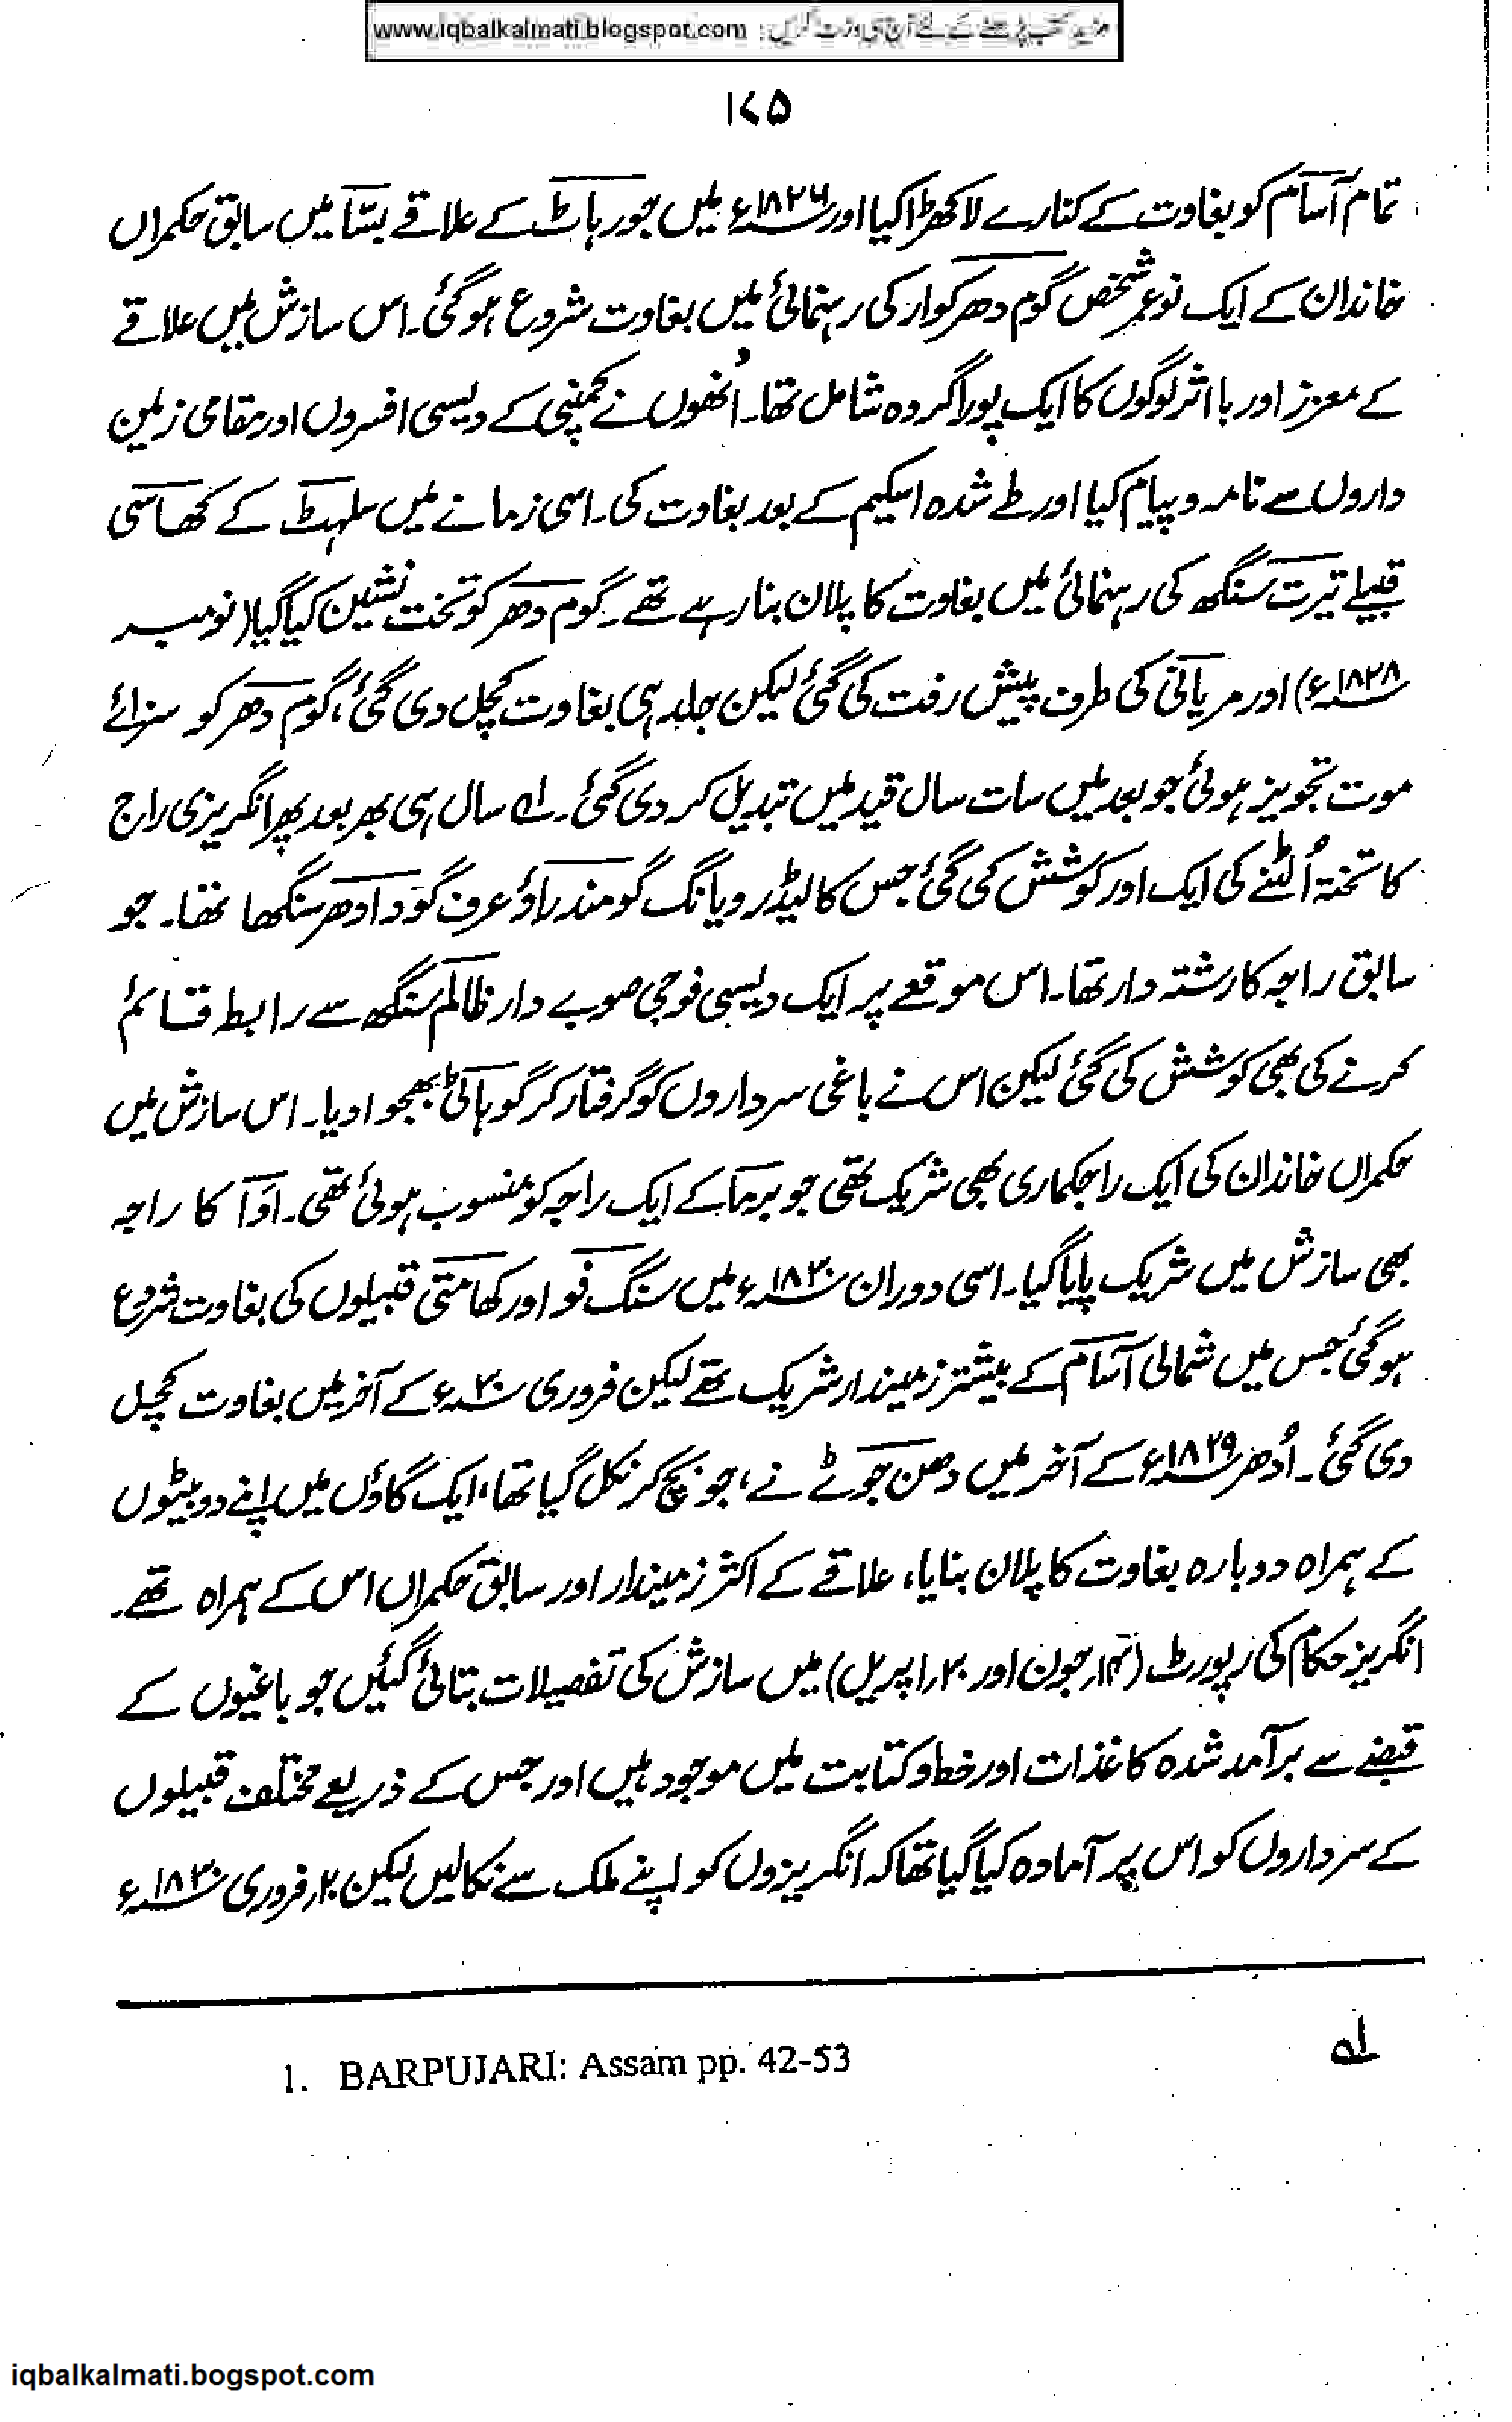 مزید کتب پڑھنے کے لئے آج ہی وزٹ کریں : www.iqbalkalmati.blogspot.com
۱۷۵
تمام آسام کو بغاوت کے کنارے لا کھڑا کیا اور ۱۸۲۶ء میں جورہاٹ کے علاقے بسّا میں سابق حکمراں
خاندان کے ایک نوعمر شخص گوم دھر کوار کی رہنمائی میں بغاوت شروع ہوگئی۔ اس سازش میں علاقے
کے معزز اور با اثر لوگوں کا ایک پورا گروہ شامل تھا۔ اُنھوں نے کمپنی کے دیسی افسروں اور مقامی زمین
داروں سے نامہ و پیام کیا اور طے شدہ اسکیم کے بعد بغاوت کی۔ اسی زمانے میں سلہٹ کے کھاسی
قبیلے تیرت سنگھ کی رہنمائی میں بغاوت کا پلان بنا رہے تھے۔ گوم دھر کو تخت نشین کیا گیا (نومبر
۱۸۲۸ء) اور مریانی کی طرف پیش رفت کی گئی لیکن جلد ہی بغاوت کچل دی گئی، گوم دھر کو سزائے
موت تجویز ہوئی جو بعد میں سات سال قید میں تبدیل کر دی گئی۔ ۵۱ سال ہی بھر بعد پھر انگریزی راج
کا تختہ اُلٹنے کی ایک اور کوشش کی گئی جس کا لیڈر روپانگ گومندراؤ عرف گودادھر سنگھا تھا۔ جو
سابق راجہ کا رشتہ دار تھا۔ اس موقعے پر ایک دیسی فوجی صوبے دار ظالم سنگھ سے رابط قائم
کرنے کی بھی کوشش کی گئی لیکن اس نے باغی سرداروں کو گرفتار کر گوہاٹی بھجوا دیا۔ اس سازش میں
حکمراں خاندان کی ایک راجکماری بھی شریک تھی جو برما کے ایک راجہ کو منسوب ہوئی تھی۔ آوا کا راجہ
بھی سازش میں شریک پایا گیا۔ اسی دوران ۱۸۳۰ء میں سنگ فو اور کھامتی قبیلوں کی بغاوت شروع
ہوگئی جس میں شمالی آسام کے بیشتر زمیندار شریک تھے لیکن فروری ۳۰ء کے آخر میں بغاوت کچل
دی گئی۔ اُدھر ۱۸۲۹ء کے آخر میں دھن جوٹے نے، جو بچ کر نکل گیا تھا، ایک گاؤں میں اپنے دو بیٹوں
کے ہمراہ دوبارہ بغاوت کا پلان بنایا، علاقے کے اکثر زمیندار اور سابق حکمراں اس کے ہمراہ تھے۔
انگریز حکام کی رپورٹ (۱۴؍جون اور ۳۰؍اپریل) میں سازش کی تفصیلات بتائی گئیں جو باغیوں کے
قبضے سے برآمد شدہ کاغذات اور خط و کتابت میں موجود ہیں اور جس کے ذریعے مختلف قبیلوں
کے سرداروں کو اس پر آمادہ کیا گیا تھا کہ انگریزوں کو اپنے ملک سے نکالیں لیکن ۲؍فروری ۱۸۳۰ء
۵۱
1. BARPUJARI: Assam pp. 42-53
iqbalkalmati.bogspot.com